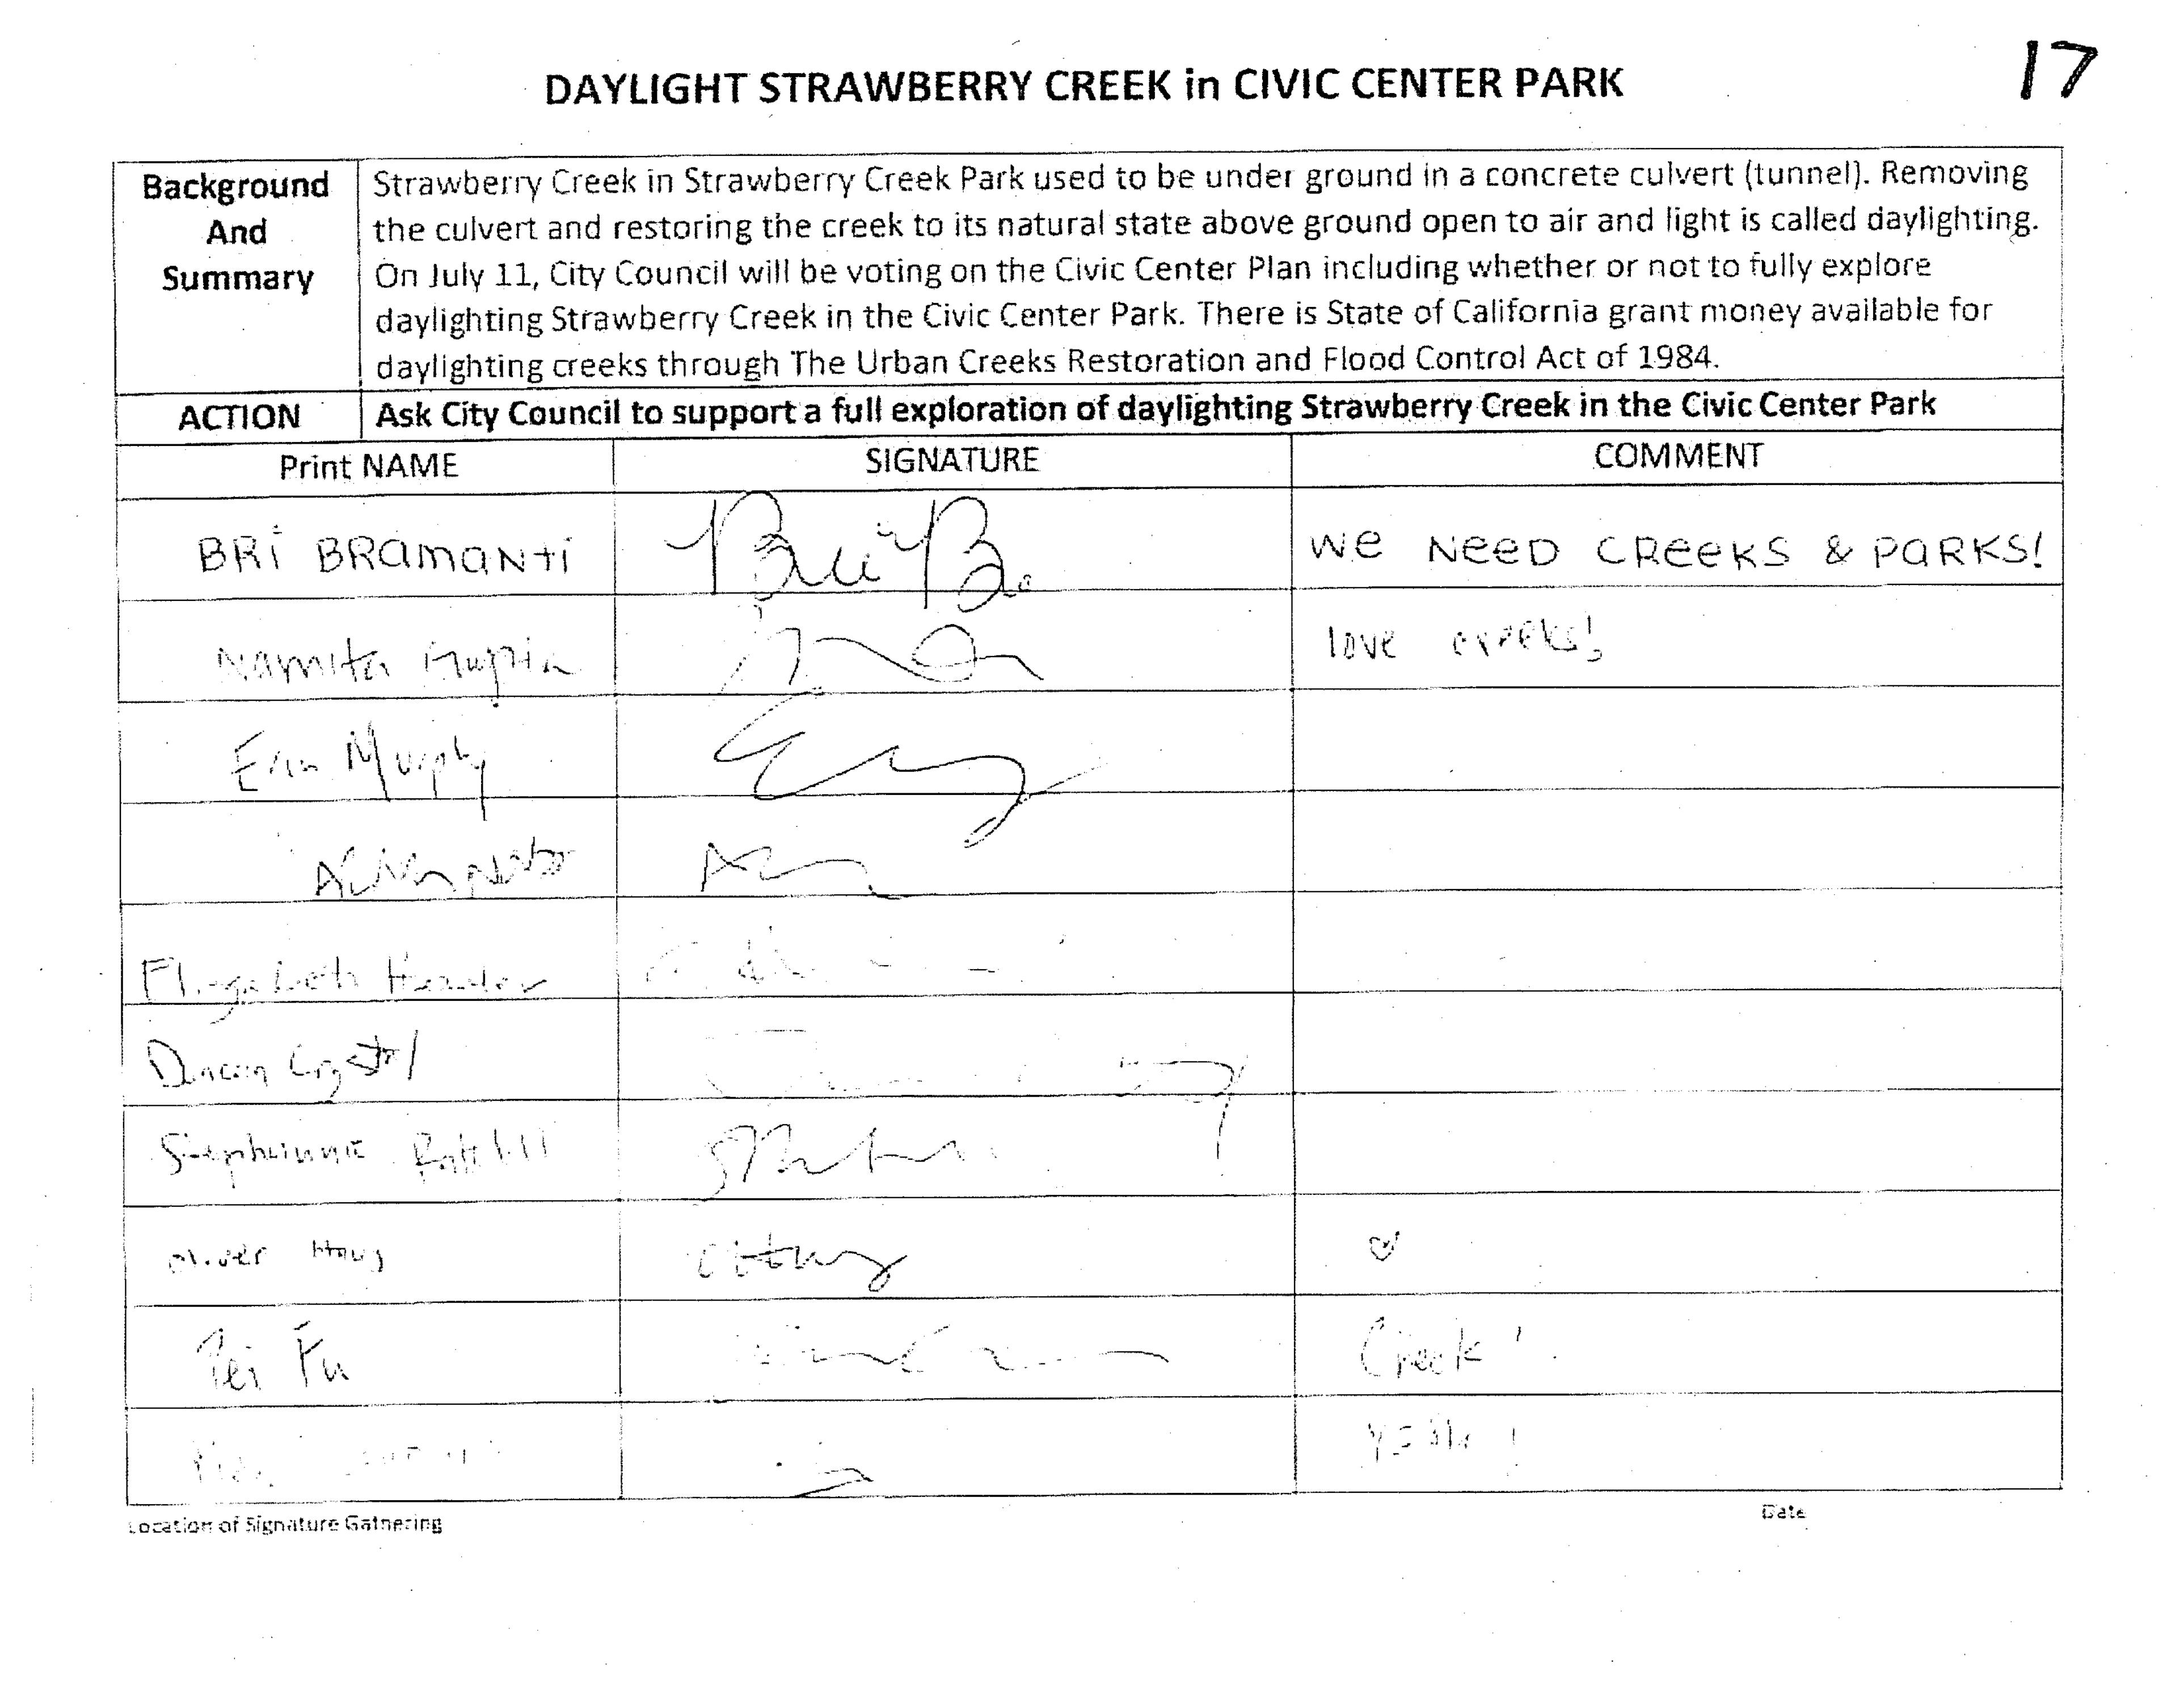 17
DAYLIGHT STRAWBERRY CREEK in CIVIC CENTER PARK
Background And Summary
Strawberry Creek in Strawberry Creek Park used to be under ground in a concrete culvert (tunnel). Removing
the culvert and restoring the creek to its natural state above ground open to air and light is called daylighting.
On July 11, City Council will be voting on the Civic Center Plan including whether or not to fully explore
daylighting Strawberry Creek in the Civic Center Park. There is State of California grant money available for
daylighting creeks through The Urban Creeks Restoration and Flood Control Act of 1984.
ACTION Ask City Council to support a full exploration of daylighting Strawberry Creek in the Civic Center Park
Print NAME SIGNATURE COMMENT
BRi BRamaNti Bri B. we NeeD CReeKS & PaRKS!
Namita Gupta love creeks!
Erin Murphy
Elizabeth
Duncan Crystal
Stephannie
Oliver Haug OHaug ♡
Pei Fu Creek!
yeah!
Location of Signature Gathering Date